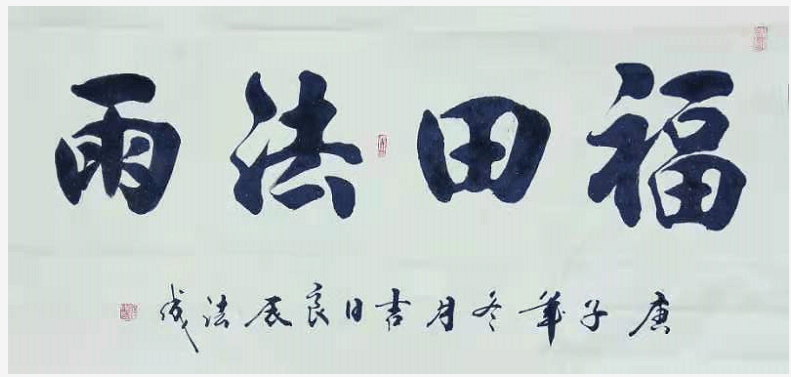 福田法雨
庚子年冬月吉日良辰法成